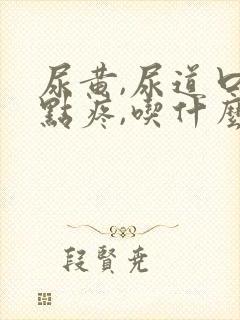 尿黄,尿道口
點疼,喫什麼
段賢尭